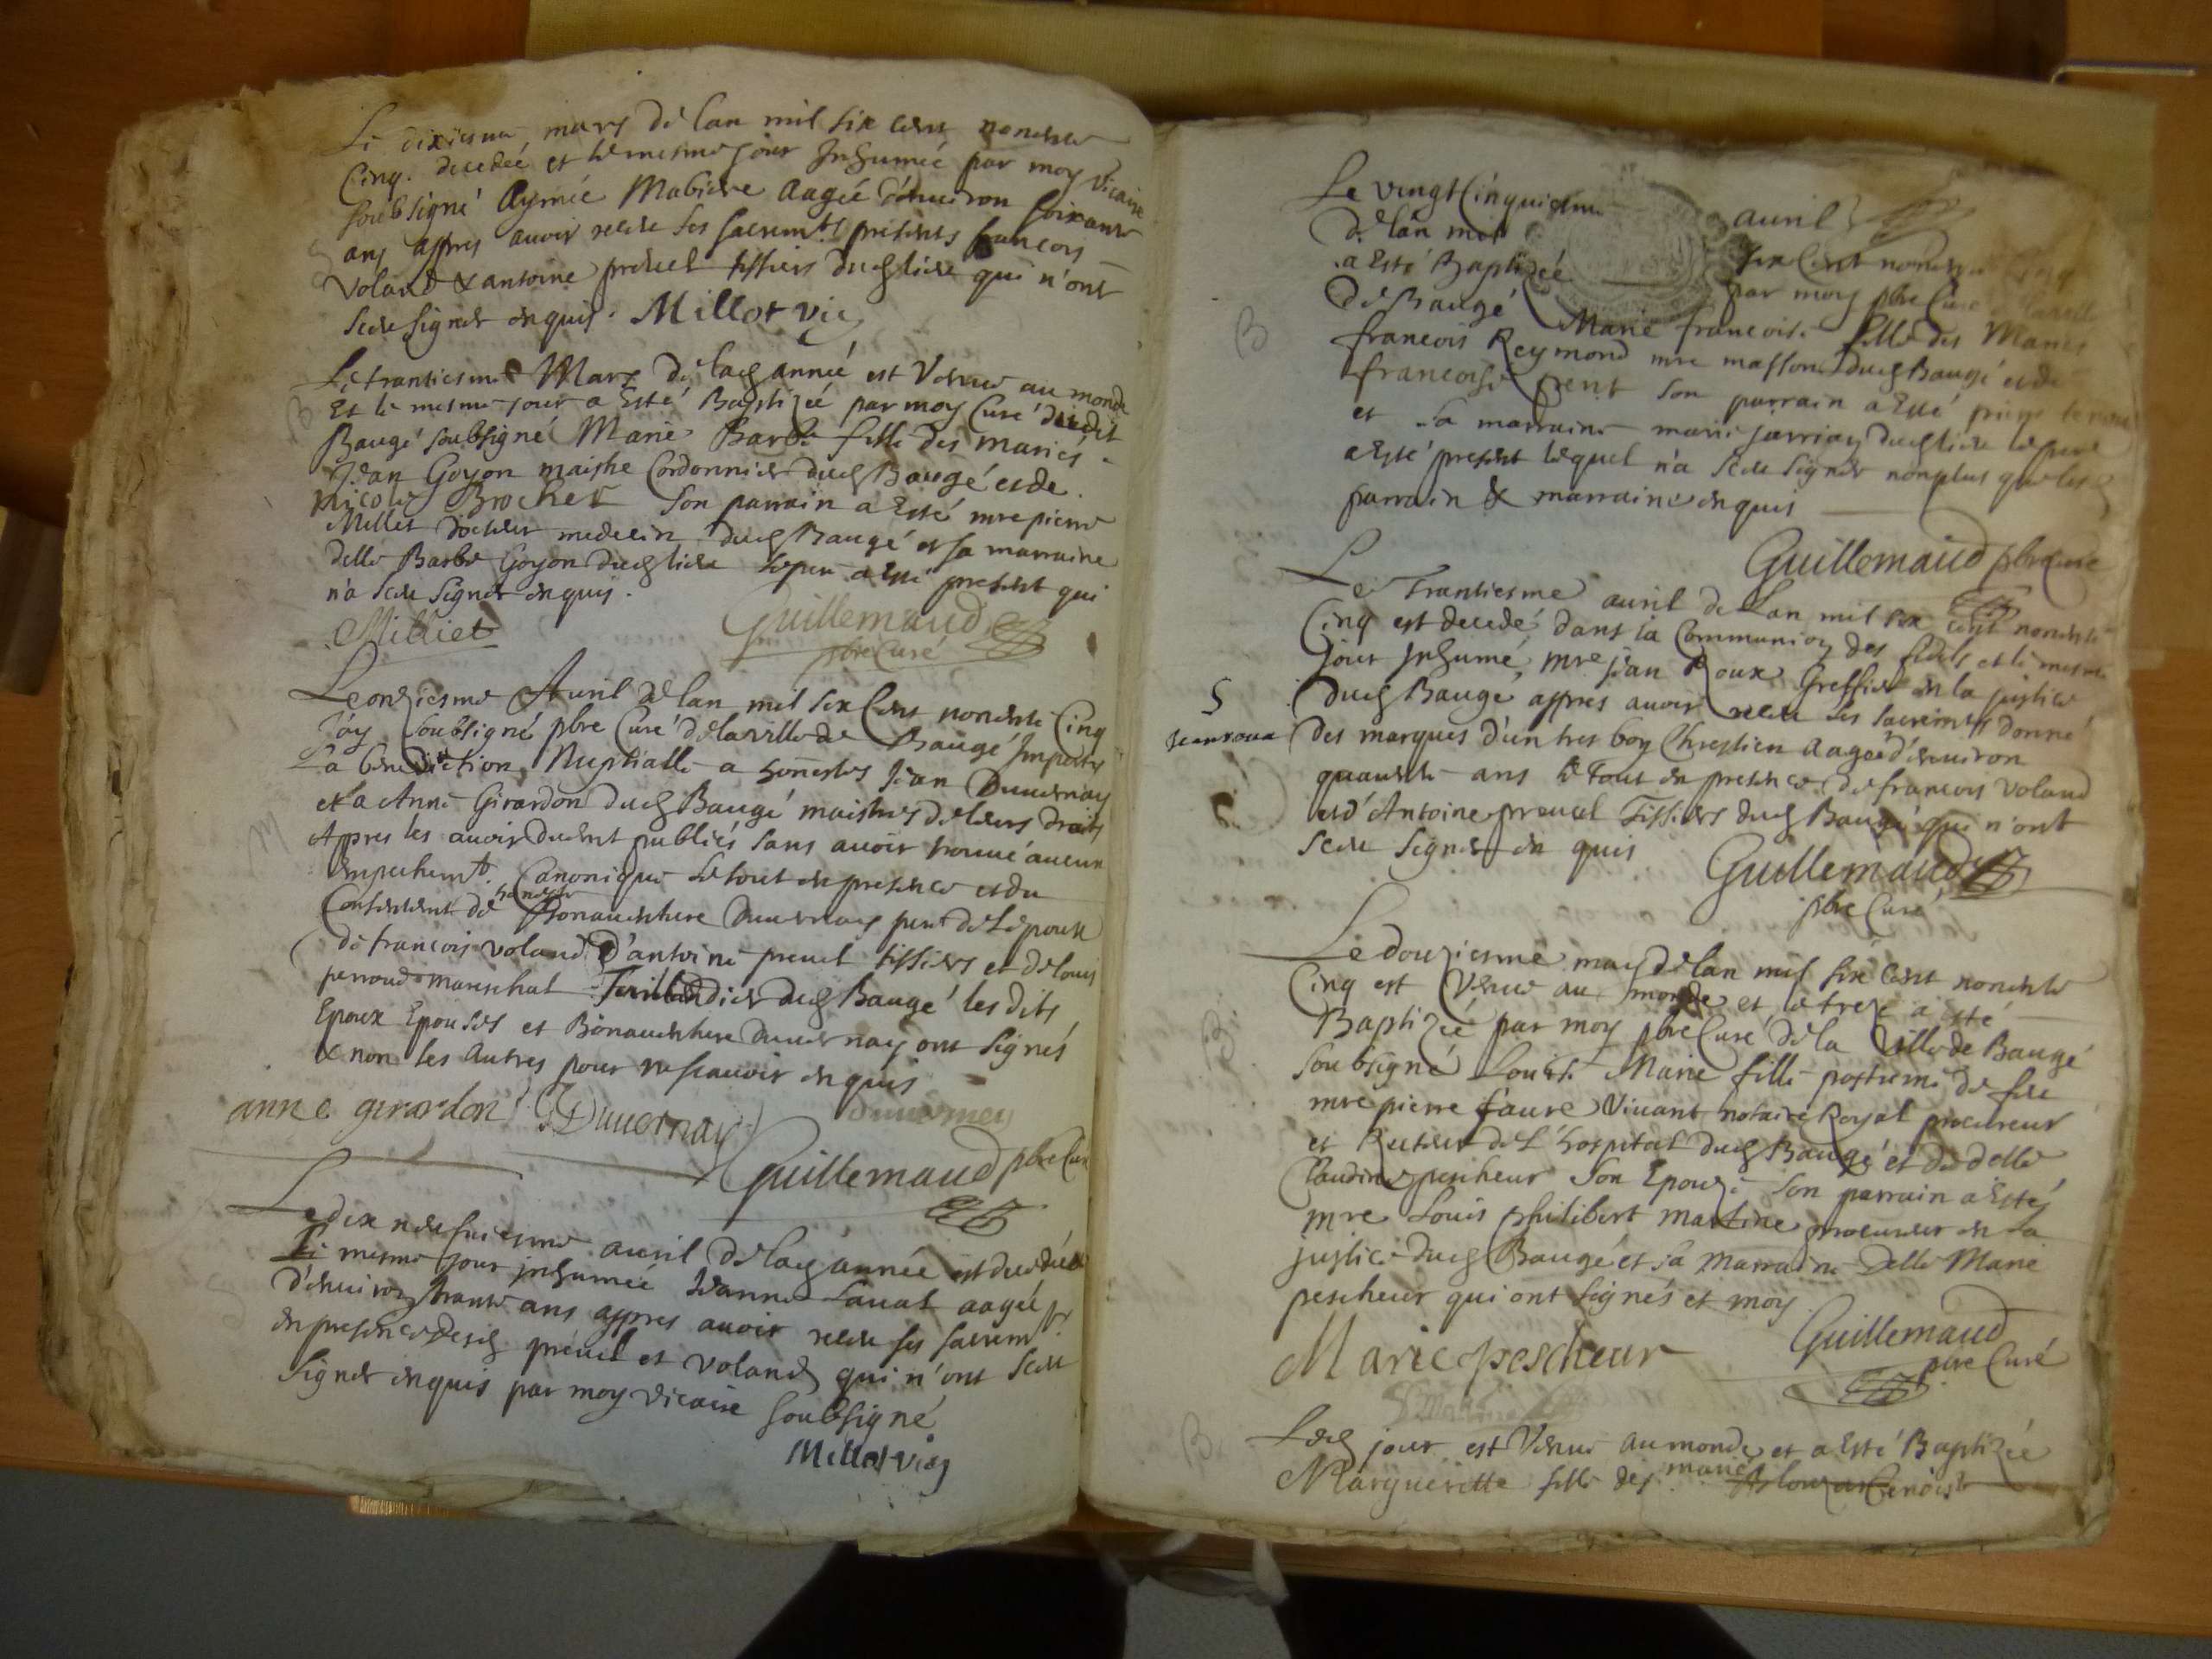 Le dixiesme mars de lan mil six cent nonente
Cinq. decedeé et le mesme jour Inhumeé par moy vicaire
soubsigné Aymeé Mabiere Aagée d'enuiron soixante
ans appres auoir receu ses sacremts presents francois
Voland & antoine preuel tissiers dud lieu qui n'ont
sceu signer enquis. Millot vic
Le trantiesme Mars de lad année est Venue au monde
Et le mesme jour a Esté Baptizée par moy Curé dudit
B
Baugé soubsigné Marie Barbe fille des mariés
Jean Goyon maistre Cordonnier dud Baugé et de
Nicole Brochet son parrain a Esté mre pierre
Milliet docteur medecin dud Baugé et sa marraine
delle Barbe Goyon dud lieu le pere a Esté present qui
n'a sceu signer enquis.
Milliet Guillemaud
pbre Curé
Le onziesme Auril de lan mil six Cent nonente Cinq
J'ay soubsigné pbre Curé de la ville de Baugé Imparti
La benediction Nuptialle a honestes Jean Duuernay
M
et a Anne Girardon dud Baugé maistres de leurs droits
Appres les auoir duemt publiés sans auoir trouué aucun
empechemt. Canonique Le tout en presence et du
honeste
Consentemt de Bonauenture Duuernay de L'epoux
de francois voland d'antoine preuel tissiers et de louis
perroud mareschal Taillandier dud Baugé les dits
Epoux Epouses et Bonauenture Duuernay ont signés
& non les autres pour ne scauoir enquis
anne girardon J Duuernay duuerney
Guillemaud pbre Cure
Le dix neufuiesme auril de lad année est decedée
Le mesme jour inhumée Jeanne Laual aagée
d'enuiron trante ans appres auoir receu ses sacremts
en presence desd preuel et voland qui n'ont sceu
signer enquis par moy vicaire soubsigné
Millot vic
Le vingt Cinquiesme auril
de lan mil six Cent nonente Cinq
a Esté Baptizée par moy pbre Curé
de Baugé Marie francoise fille des Mariés
B
francois Reymond mre masson dud Baugé et de
francoise son parrain a Esté
et sa marraine marie dud lieu le pere
a Esté present lequel n'a sceu signer non plus que les
parrain & marraine enquis
Guillemaud pbre Cure
Le Trantiesme auril de Lan mil six cent nonente
Cinq est decedé dans la Communion des fidels et le mesme
jour Inhumé, mre jean Roux Greffier en la justice
S
dud Baugé appres auoir receu ses sacremts donné
Jean roux
des marques d'un tres bon Chrestien Aageé d'enuiron
quarente ans le Tout en presence de francois Voland
et d'Antoine preuel Tissiers dud Baugé qui n'ont
sceu signer en quis Guillemaud
pbre Curé
Le douziesme may de lan mil six cent nonente
Cinq est Venue au monde et le treze a esté
Baptizée par moy pbre Curé de la Ville de Baugé
B
soubsigné Louise Marie fille postume de feu
mre pierre faure Viuant notaire Royal procureur
et Recteur de L'hospital dud Baugé et de delle
Claudine pescheur son Epouze son parrain a Esté
mre Louis philibert martine procureur en la
justice dud Baugé et sa marraine delle Marie
pescheur qui ont signés et moy.
Marie pescheur Guillemaud
pbre Curé
Martine
B
Led jour est Venue au monde et a Esté Baptizée
mariés
Margueritte fille des benoist